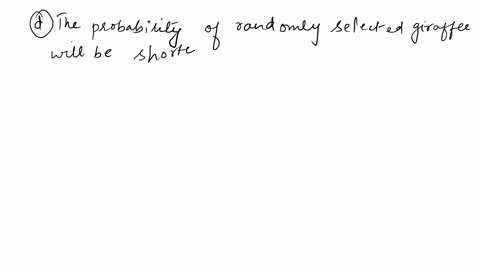 (d) The probability of randomly selected giraffee
will be shorte